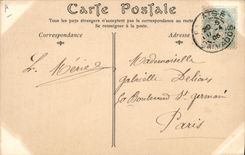 Carte Postale
Tous les pays étrangers n'acceptent pas la correspondance au recto.
Se renseigner à la poste.
Correspondance
Adresse
L. Mérie
Mademoiselle
Gabrielle
50 Boulevard St germain
Paris
CALVADOS